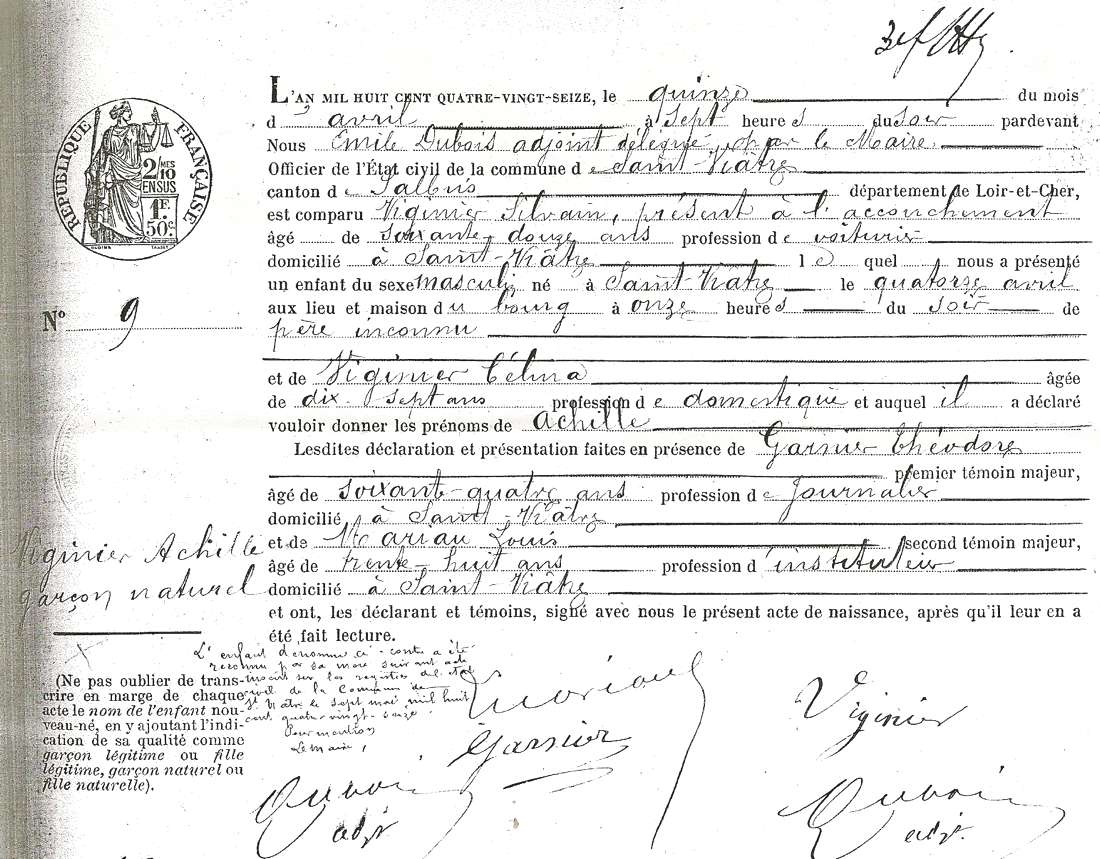 RÉPUBLIQUE FRANÇAISE
2 MES
10
EN SUS
1 F.
50 c.
L'AN MIL HUIT CENT QUATRE-VINGT-SEIZE, le quinze du mois
d' avril à sept heures du soir pardevant
Nous Emile Dubois adjoint délégué par le Maire
Officier de l'État civil de la commune de Saint-Viâtre
canton de Salbris département de Loir-et-Cher,
est comparu Viginier Silvain, présent à l'accouchement
âgé de soixante-douze ans profession de voiturier
domicilié à Saint-Viâtre lequel nous a présenté
un enfant du sexe masculin né à Saint-Viâtre le quatorze avril
aux lieu et maison du bourg à onze heures du soir de
père inconnu
et de Viginier Célina âgée
de dix-sept ans profession de domestique et auquel il a déclaré
vouloir donner les prénoms de Achille
Lesdites déclaration et présentation faites en présence de Garnier Théodore
premier témoin majeur,
âgé de soixante-quatre ans profession de journalier
domicilié à Saint-Viâtre
et de Mariau Louis second témoin majeur,
âgé de trente-huit ans profession d'instituteur
domicilié à Saint-Viâtre
et ont, les déclarant et témoins, signé avec nous le présent acte de naissance, après qu'il leur en a
été fait lecture.
N° 9
Viginier Achille
garçon naturel
(Ne pas oublier de trans-
crire en marge de chaque
acte le nom de l'enfant nou-
veau-né, en y ajoutant l'indi-
cation de sa qualité comme
garçon légitime ou fille
légitime, garçon naturel ou
fille naturelle).
L'enfant dénommé ci-contre a été
reconnu par sa mère suivant acte
inscrit sur les registres de l'état
civil de la Commune de
St Viâtre le sept mai mil huit
cent quatre-vingt-seize.
Pour mention
Le Maire,
Mariau
Viginier
Garnier
Dubois
adjt
Dubois
adjt